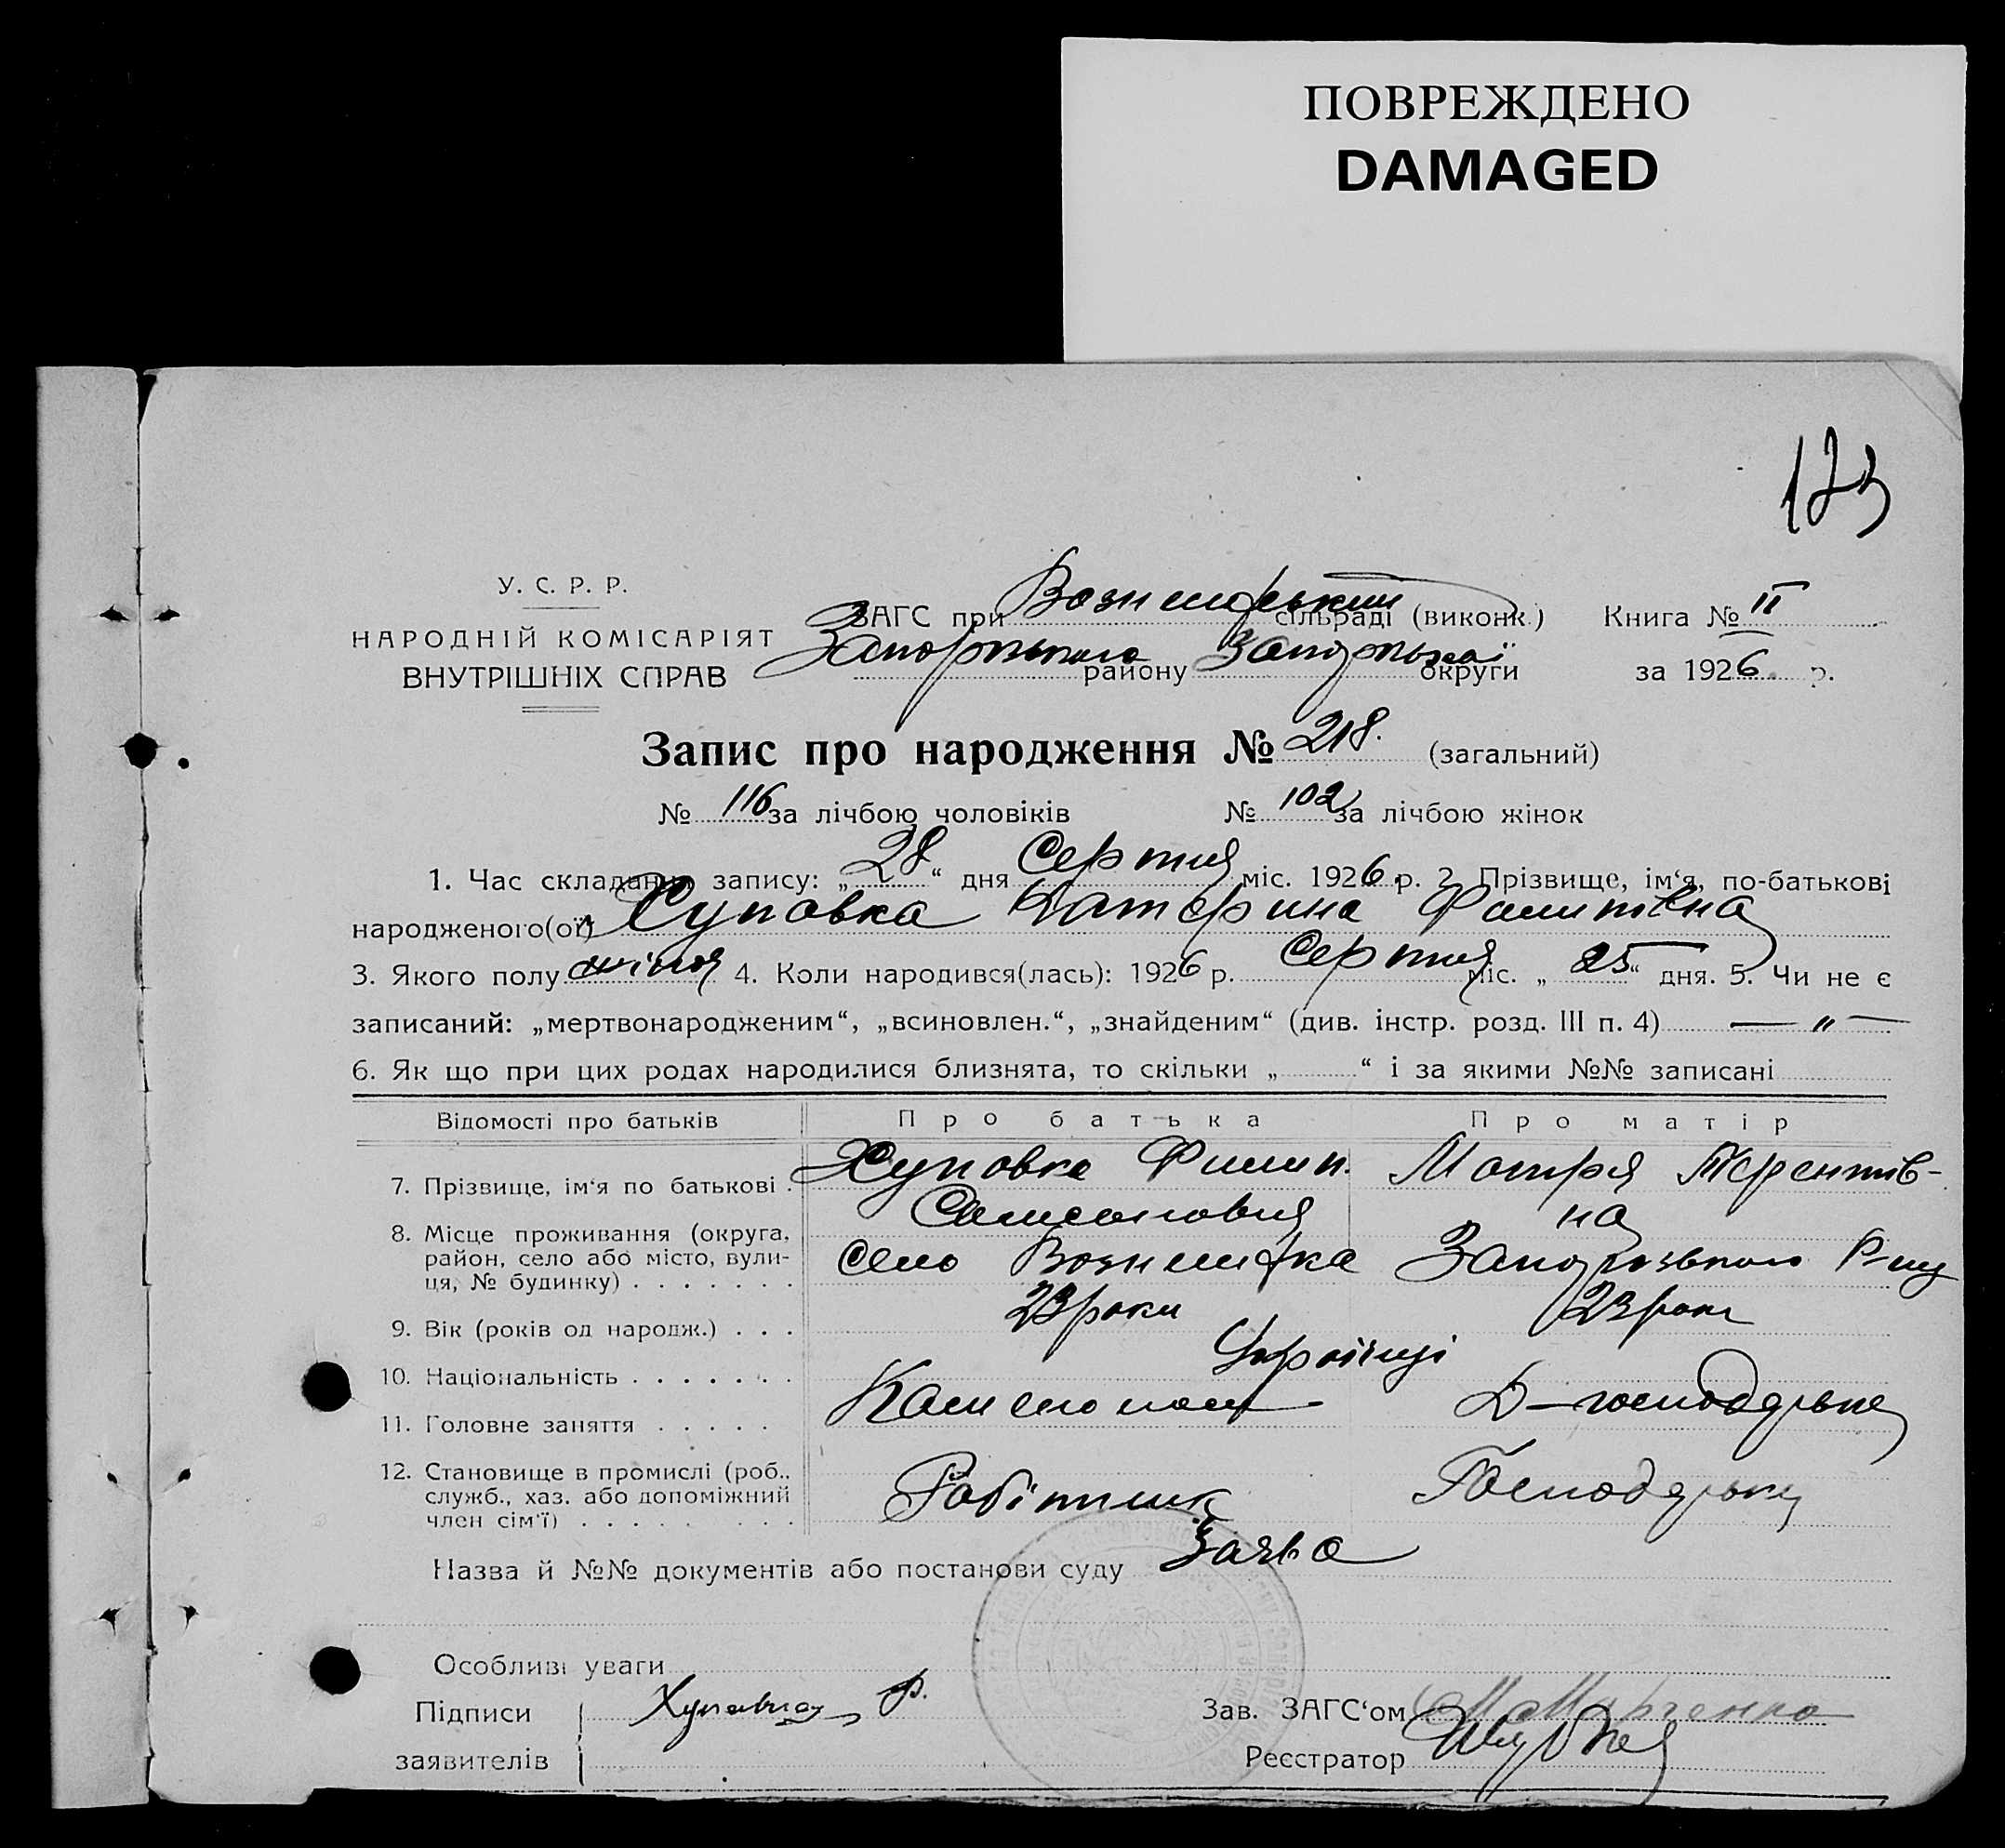 ПОВРЕЖДЕНО
DAMAGED
173
У. С. Р. Р.
НАРОДНІЙ КОМІСАРІЯТ
ВНУТРІШНІХ СПРАВ
ЗАГС при сільраді (виконк.) Книга № II
району Запорізької округи за 1926 р.
Запис про народження № 218. (загальний)
№ 116 за лічбою чоловіків № 102 за лічбою жінок
1. Час складання запису: „28“ дня Серпня міс. 1926 р. 2. Прізвище, ім‘я, по-батькові
народженого(ої) Хуповка Катерина Филипівна
3. Якого полу жіноч 4. Коли народився(лась): 1926 р. Серпня міс. „25“ дня. 5. Чи не є
записаний: „мертвонародженим“, „всиновлен.“, „знайденим“ (див. інстр. розд. III п. 4) — „ —
6. Як що при цих родах народилися близнята, то скільки „ “ і за якими №№ записані
Відомості про батьків Про батька Про матір
7. Прізвище, ім‘я по батькові . Хуповка Филип. Мотря Терентів-
Самсонович на
8. Місце проживання (округа,
район, село або місто, вули- село Вознесенка Запорізького Р-ну
ця, № будинку) . . . . . . .
9. Вік (років од народж.) . . . 23 роки 23 роки
10. Національність . . . . . . . Українці
11. Головне заняття . . . . . Д-господарька
12. Становище в промислі (роб.,
служб., хаз. або допоміжний Робітник Господарька
член сім‘ї) . . . . . . . . .
Назва й №№ документів або постанови суду Заява
Особливі уваги
Підписи Хуповка Ф. Зав. ЗАГС‘ом
заявителів Реєстратор